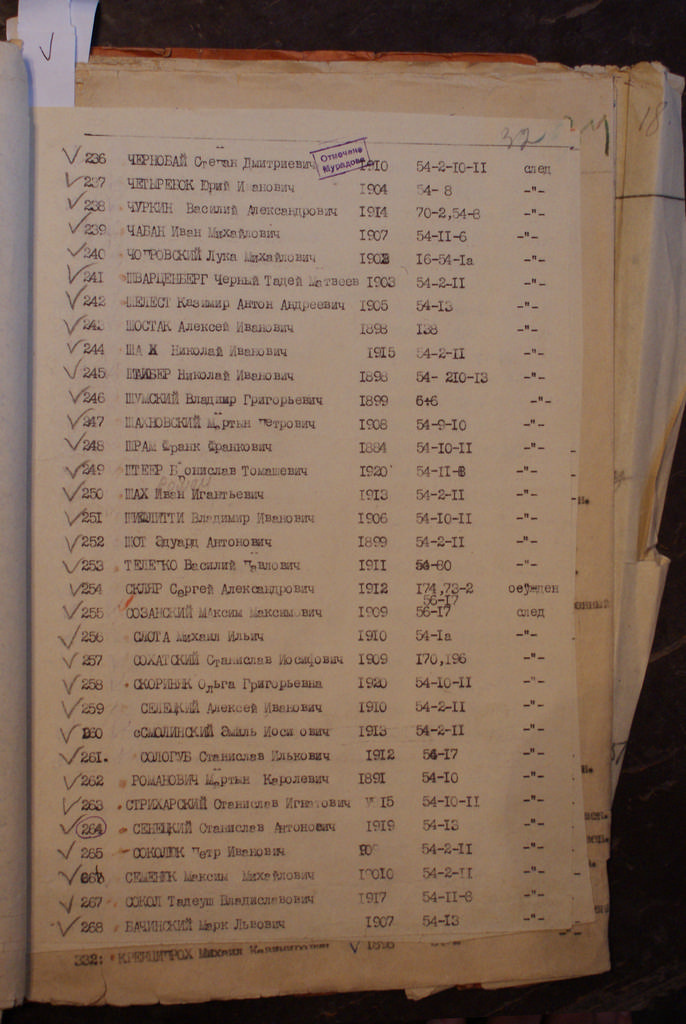 32
18
Отпочене Мурадова
236 ЧЕРНОБАЙ Степан Дмитриевич 1910 54-2-10-II след
237 ЧЕТЫРЕНОК Юрий Иванович I904 54- 8 -"-
238 ЧУРКИН Василий Александрович I9I4 70-2,54-8 -"-
239 ЧАБАН Иван Михайлович I907 54-II-6 -"-
240 ЧОПРОВСКИЙ Лука Михайлович I902 I6-54-Ia -"-
241 ШВАРЦЕНБЕРГ Черный Тадей Матвеев I903 54-2-II -"-
242 ШЕЛЕСТ Казимир Антон Андреевич I905 54-I3 -"-
243 ШОСТАК Алексей Иванович I898 I38 -"-
244 ША Х Николай Иванович I9I5 54-2-II -"-
245 ШТАЙБЕР Николай Иванович I898 54- 2I0-I3 -"-
246 ШУМСКИЙ Владимр Григорьевич I899 6+6 -"-
247 ШАХНОВСКИЙ Мартын Петрович I908 54-9-I0 -"-
248 ШРАМ Франк Франкович I884 54-I0-II -"-
249 ШТЕЕР Бронислав Томашевич I920 54-II-8 -"-
250 ШАХ Иван Игантьевич I9I3 54-2-II -"-
251 Владимир Иванович I906 54-I0-II -"-
252 ШОТ Эдуард Антонович I899 54-2-II -"-
253 ТЕЛЕПКО Василий Павлович I9II 54-80 -"-
254 СКЛЯР Сергей Александрович I9I2 I74,73-2 осужден
56-I7
255 СОЗАНСКИЙ Максим Максимович I909 56-I7 след
256 СЛОТА Михаил Ильич I9I0 54-Ia -"-
257 СОХАТСКИЙ Станислав Иосифович I909 I70,I96 -"-
258 СКОРИНЯК Ольга Григорьевна I920 54-I0-II -"-
259 СЕЛЕЦКИЙ Алексей Иванович I9I0 54-2-II -"-
260 сСМОЛИНСКИЙ Эмиль Иоси ович I9I3 54-2-II -"-
261. СОЛОГУБ Станислав Илькович I9I2 56-I7 -"-
262 РОМАНОВИЧ Мартын Каролевич I89I 54-I0 -"-
263 СТРИХАРСКИЙ Станислав Игнатович I5 54-I0-II -"-
264 СЕНЕЦКИЙ Станислав Антонович I9I9 54-I3 -"-
265 СОКОЛЮК Петр Иванович 54-2-II -"-
266 СЕМЕНЮК Максим Михайлович I9010 54-2-II -"-
267 СОКОЛ Тадеуш Владиславович I9I7 54-II-8 -"-
268 БАЧИНСКИЙ Марк Львович I907 54-I3 -"-
332: Михаил